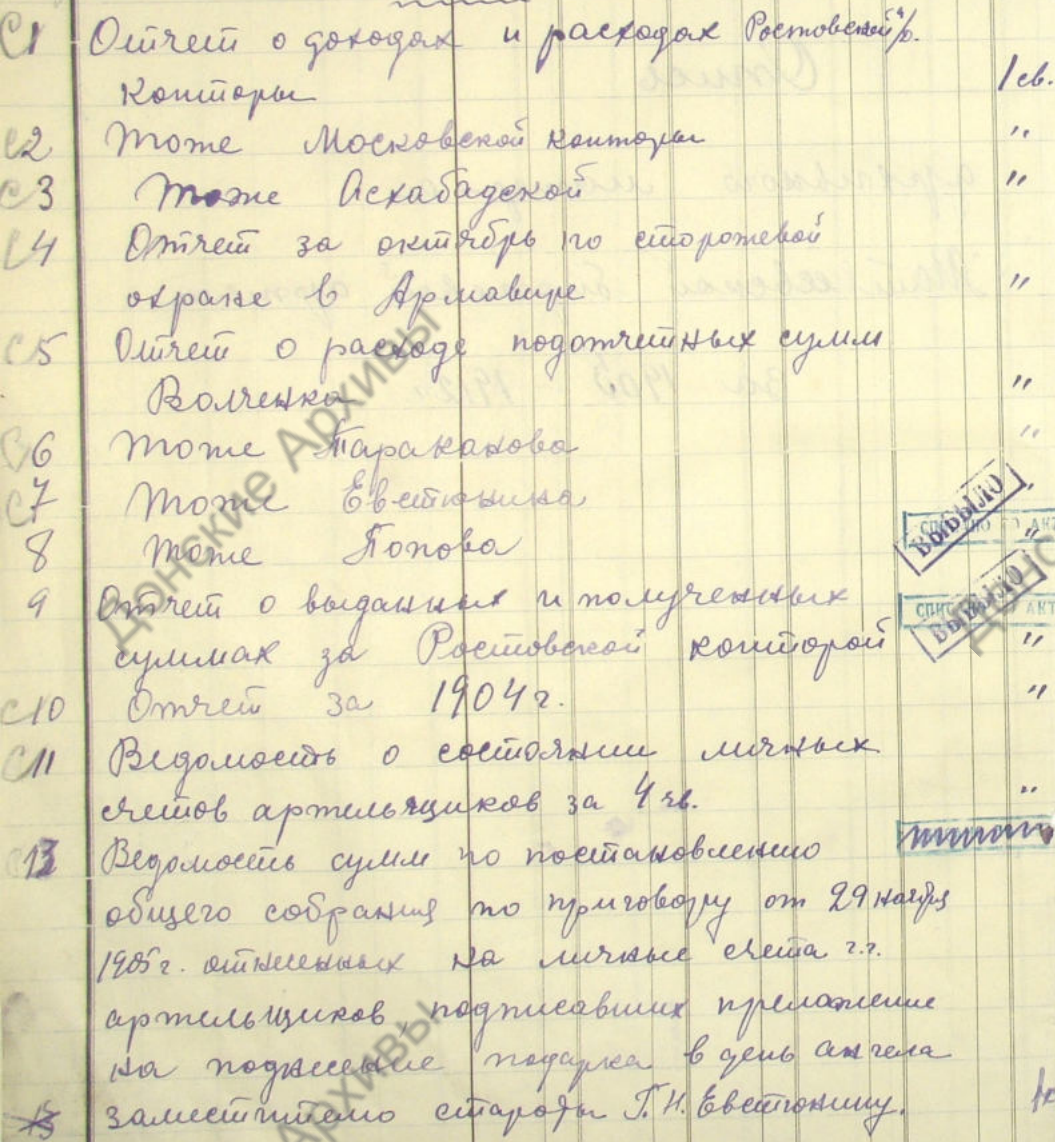 С1 Отчет о доходах и расходах Ростовской
Конторы 1 св.
С2 Тоже Московской конторы "
С3 Тоже Асхабадской "
С4 Отчет за октябрь по сторожевой
охране в Армавире "
С5 Отчет о расходе подотчетных сумм
Волченка "
С6 Тоже Тараканова "
С7 Тоже Евстюнина "
8 Тоже Попова "
ВЫБЫЛО
9 Отчет о выданных и полученных
ВЫБЫЛО
суммах за Ростовской конторой "
С10 Отчет за 1904 г. "
С11 Ведомость о состоянии личных
счетов артельщиков за 4 чв. "
Ведомость сумм по постановлению
общего собрания по приговору от 29 ноября
1905 г. отнесенных на личные счета г.г.
артельщиков, подписавших преложение
на поднесение подарка в день ангела
заместителю старосты Г. Н. Евстюнину.
Донские Архивы
Архивы